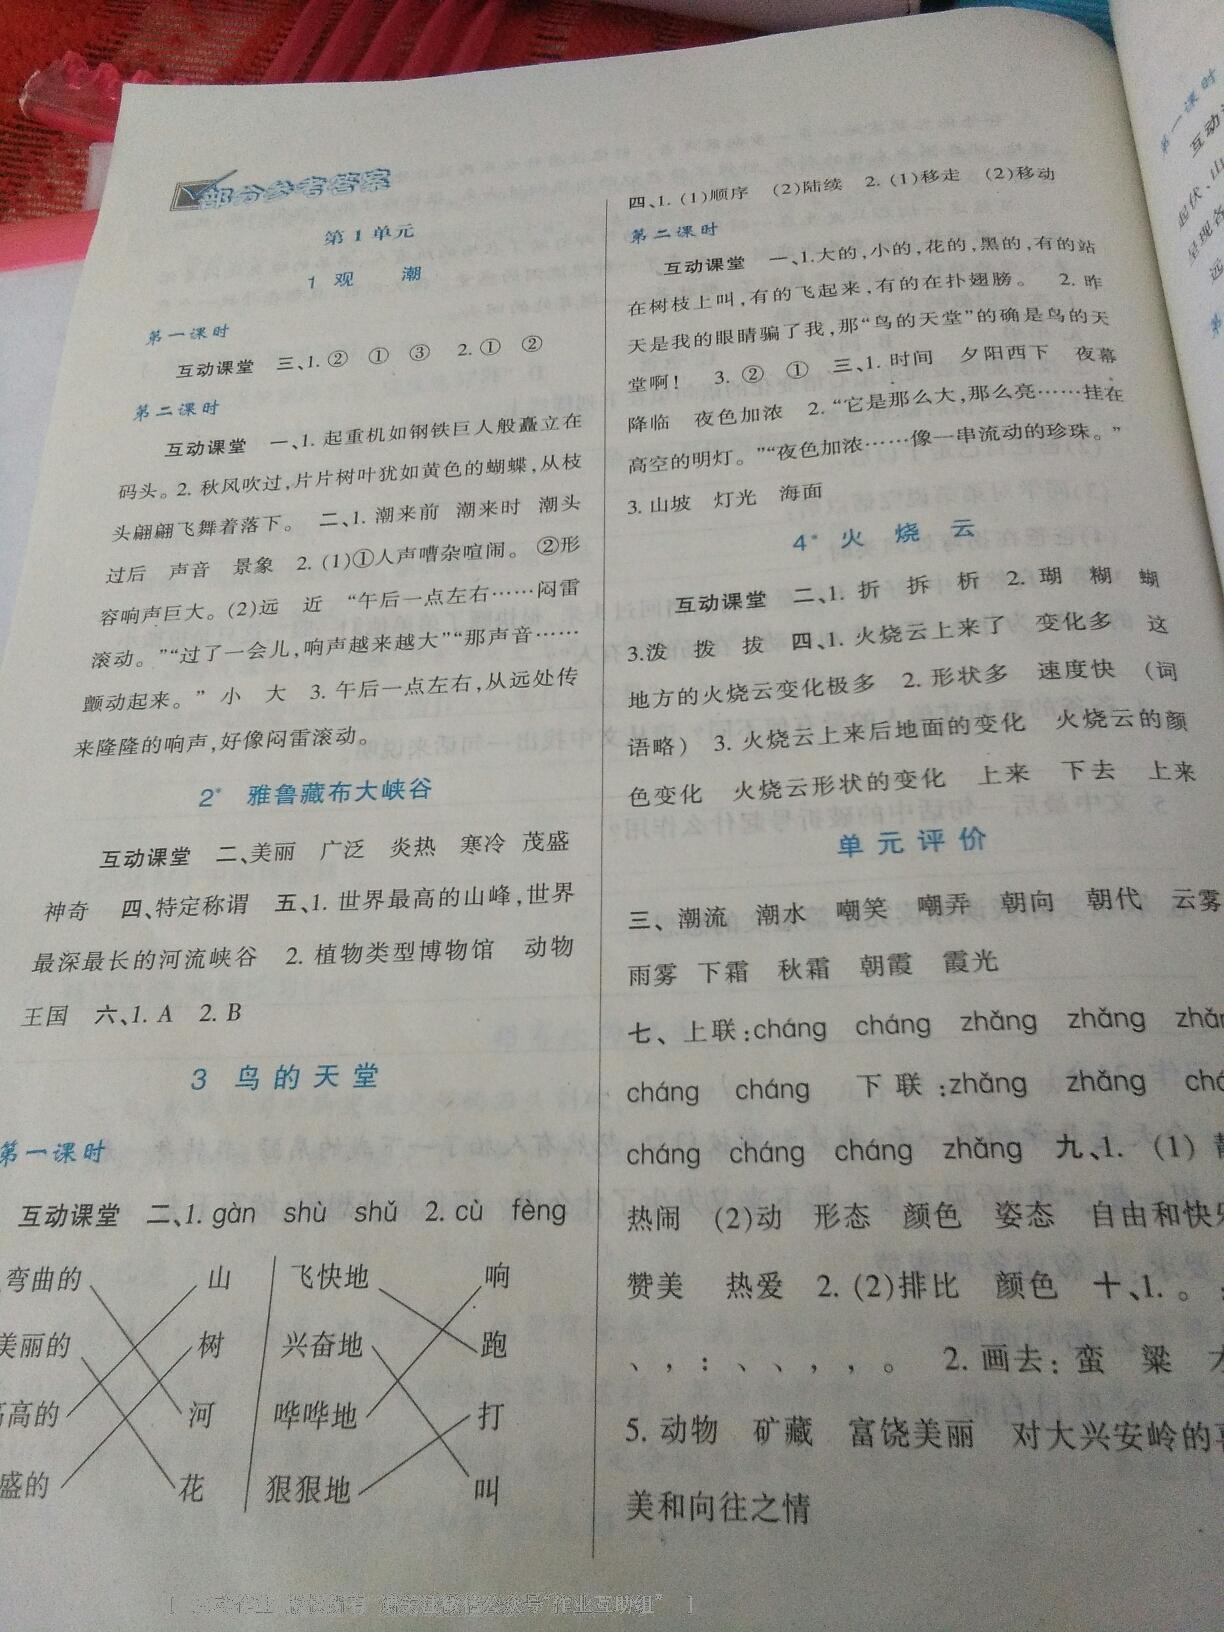 部分参考答案
第1单元
1 观 潮
第一课时
互动课堂 三、1. ② ① ③ 2. ① ②
第二课时
互动课堂 一、1. 起重机如钢铁巨人般矗立在
码头。2. 秋风吹过,片片树叶犹如黄色的蝴蝶,从枝
头翩翩飞舞着落下。 二、1. 潮来前 潮来时 潮头
过后 声音 景象 2. (1)①人声嘈杂喧闹。 ②形
容响声巨大。(2)远 近 “午后一点左右……闷雷
滚动。”“过了一会儿,响声越来越大”“那声音……
颤动起来。” 小 大 3. 午后一点左右,从远处传
来隆隆的响声,好像闷雷滚动。
2* 雅鲁藏布大峡谷
互动课堂 二、美丽 广泛 炎热 寒冷 茂盛
神奇 四、特定称谓 五、1. 世界最高的山峰,世界
最深最长的河流峡谷 2. 植物类型博物馆 动物
王国 六、1. A 2. B
3 鸟的天堂
第一课时
互动课堂 二、1. gàn shù shǔ 2. cù fèng
弯曲的 山 飞快地 响
美丽的 树 兴奋地 跑
高高的 河 哗哗地 打
盛的 花 狠狠地 叫
四、1. (1)顺序 (2)陆续 2. (1)移走 (2)移动
第二课时
互动课堂 一、1.大的,小的,花的,黑的,有的站
在树枝上叫,有的飞起来,有的在扑翅膀。 2. 昨
天是我的眼睛骗了我,那“鸟的天堂”的确是鸟的天
堂啊! 3. ② ① 三、1. 时间 夕阳西下 夜幕
降临 夜色加浓 2. “它是那么大,那么亮……挂在
高空的明灯。”“夜色加浓……像一串流动的珍珠。”
3. 山坡 灯光 海面
4* 火烧云
互动课堂 二、1. 折 拆 析 2. 瑚 糊 蝴
3.泼 拨 拔 四、1. 火烧云上来了 变化多 这
地方的火烧云变化极多 2. 形状多 速度快 (词
语略) 3. 火烧云上来后地面的变化 火烧云的颜
色变化 火烧云形状的变化 上来 下去 上来
单元评价
三、潮流 潮水 嘲笑 嘲弄 朝向 朝代 云雾
雨雾 下霜 秋霜 朝霞 霞光
七、上联:cháng cháng zhǎng zhǎng
cháng cháng 下联:zhǎng zhǎng
cháng cháng cháng zhǎng 九、1. (1)
热闹 (2)动 形态 颜色 姿态 自由和快
赞美 热爱 2. (2)排比 颜色 十、1. 。
、,:、、,,。 2. 画去:蛮 粱
5. 动物 矿藏 富饶美丽 对大兴安岭的
美和向往之情
第一课时
互动
起伏、山
呈现各
远
第